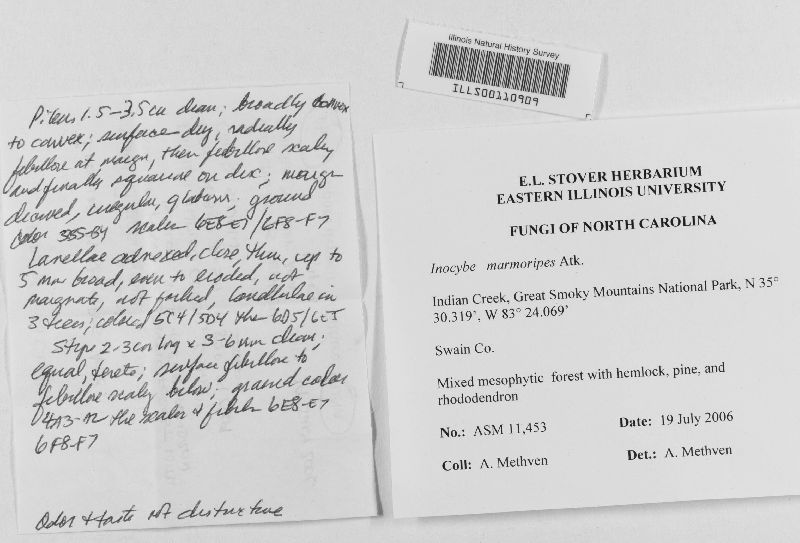 Pileus 1.5-3.5cm diam; broadly convex
to convex; surface dry, radially
fibrillose at margin, then fibrillose scaley
and finally squarrose on disc; margin
decurved, irregular, glabrous; ground
color 3B5-B4 scales 6E8-E7/6F8-F7
Lamellae adnexed, close, thin, up to
5 mm broad, even to eroded, not
marginate, not forked, lamellulae in
3 tiers; colored 5C4/5D4 then 6D5/6E5
Stipe 2-3cm long x 3-6mm diam;
equal, terete; surface fibrillose to
fibrillose scaley below; ground color
4A3-A2 the scales + fibrils 6E8-E7
6F8-F7
Odor + taste not distinctive
Illinois Natural History Survey
ILLS00110909
E.L. STOVER HERBARIUM
EASTERN ILLINOIS UNIVERSITY
FUNGI OF NORTH CAROLINA
Inocybe marmoripes Atk.
Indian Creek, Great Smoky Mountains National Park, N 35°
30.319’, W 83° 24.069’
Swain Co.
Mixed mesophytic forest with hemlock, pine, and
rhododendron
No.: ASM 11,453 Date: 19 July 2006
Coll: A. Methven Det.: A. Methven